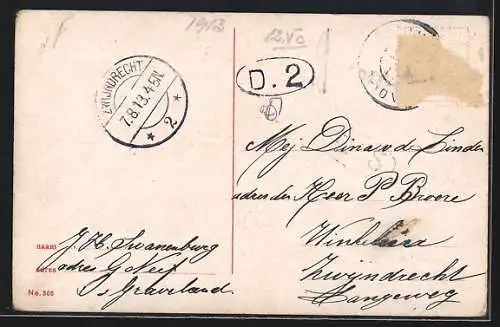 1913
12.Vo
ZWIJNDRECHT
7.8.13.4-5N.
* 2 *
D. 2
Mej Dina v d Linden
adres den Heer P Broere
Winkelier
Zwijndrecht
Langeweg
naam J. H. Swanenburg
adres adres G Neef
's Graveland
No. 305